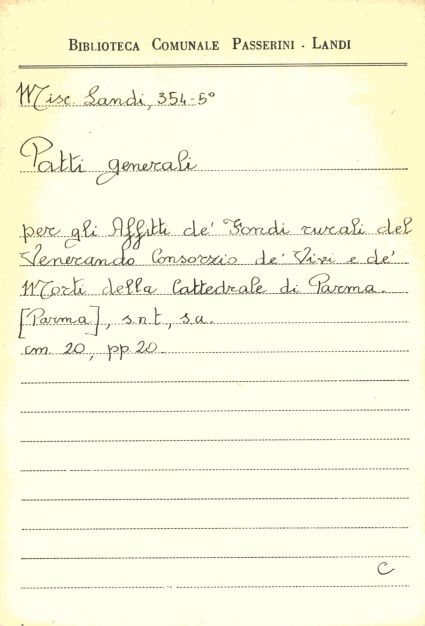 BIBLIOTECA COMUNALE PASSERINI - LANDI
Misc. Landi, 354-5°
Patti generali
per gli Affitti de' Fondi rurali del
Venerando Consorzio de' Vivi e de'
Morti della Cattedrale di Parma.
[Parma], s.n.t., s.a.
cm. 20, pp. 20.
C